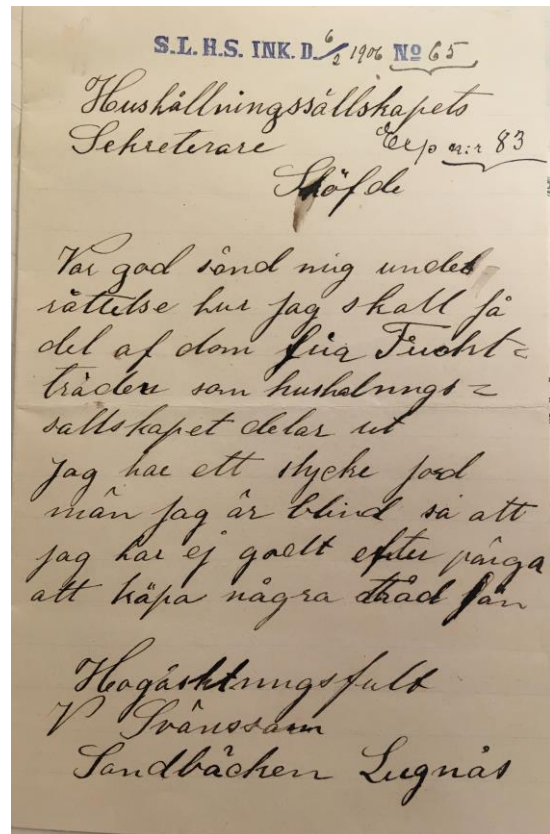 S.L.H.S. INK. D. 6/2 1906 No 65
Hushållningssällskapets
Sekreterare Exp n:r 83
Sköfde
Var god sänd mig under
rättelse hur jag skall få
del af dom fria Frucht=
träden som hushelnings=
sallskapet delar ut
jag har ett stycke jord
män jag är blind så att
jag har ej godt efter pänga
att käpa några träd från
Hogäcktnungsfullt
V Svänssam
Sandbäcken Lugnås